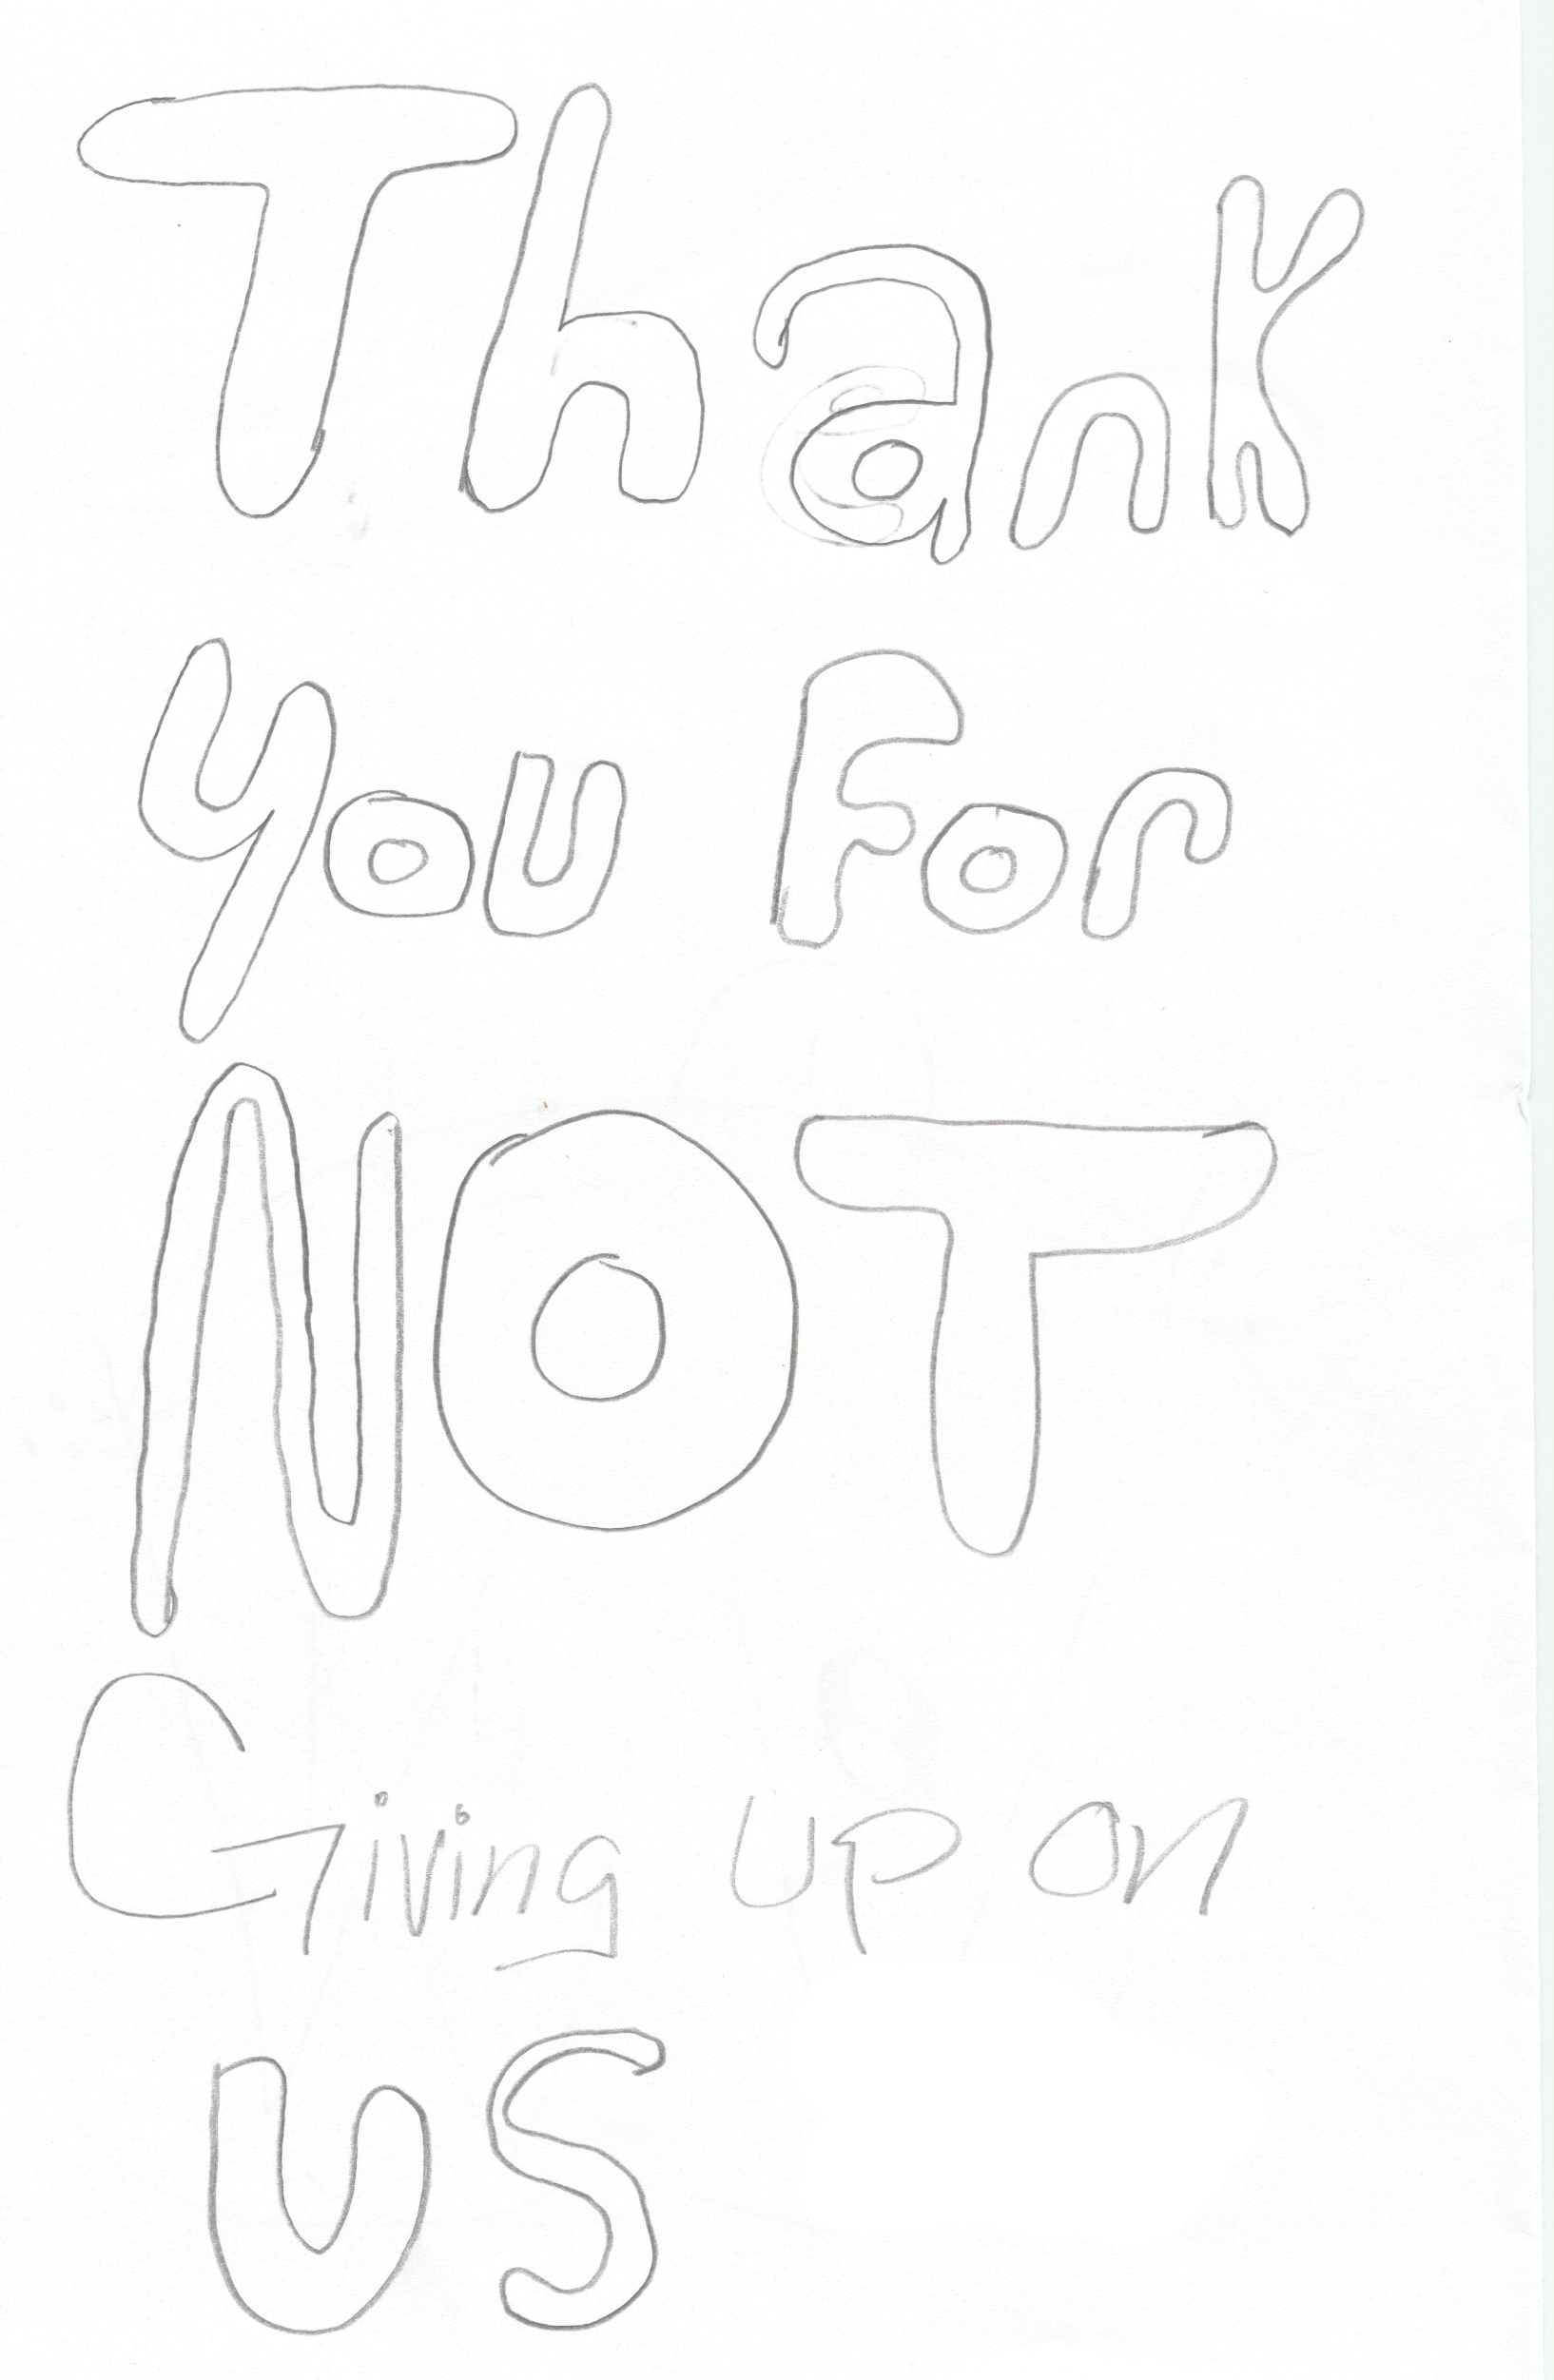 Thank
you For
NOT
Giving up on
US